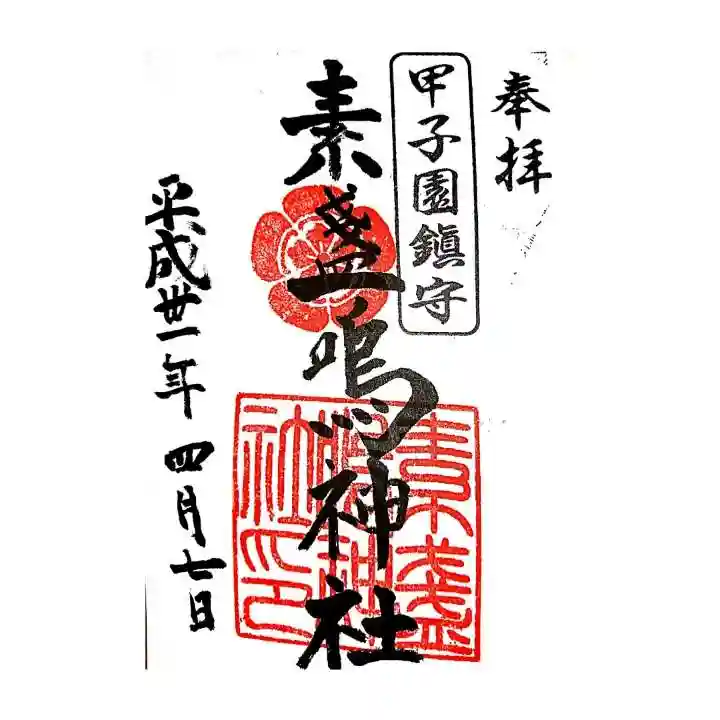 奉拝
甲子園鎮守
素盞嗚神社
素盞
嗚神
社印
平成卅一年四月七日